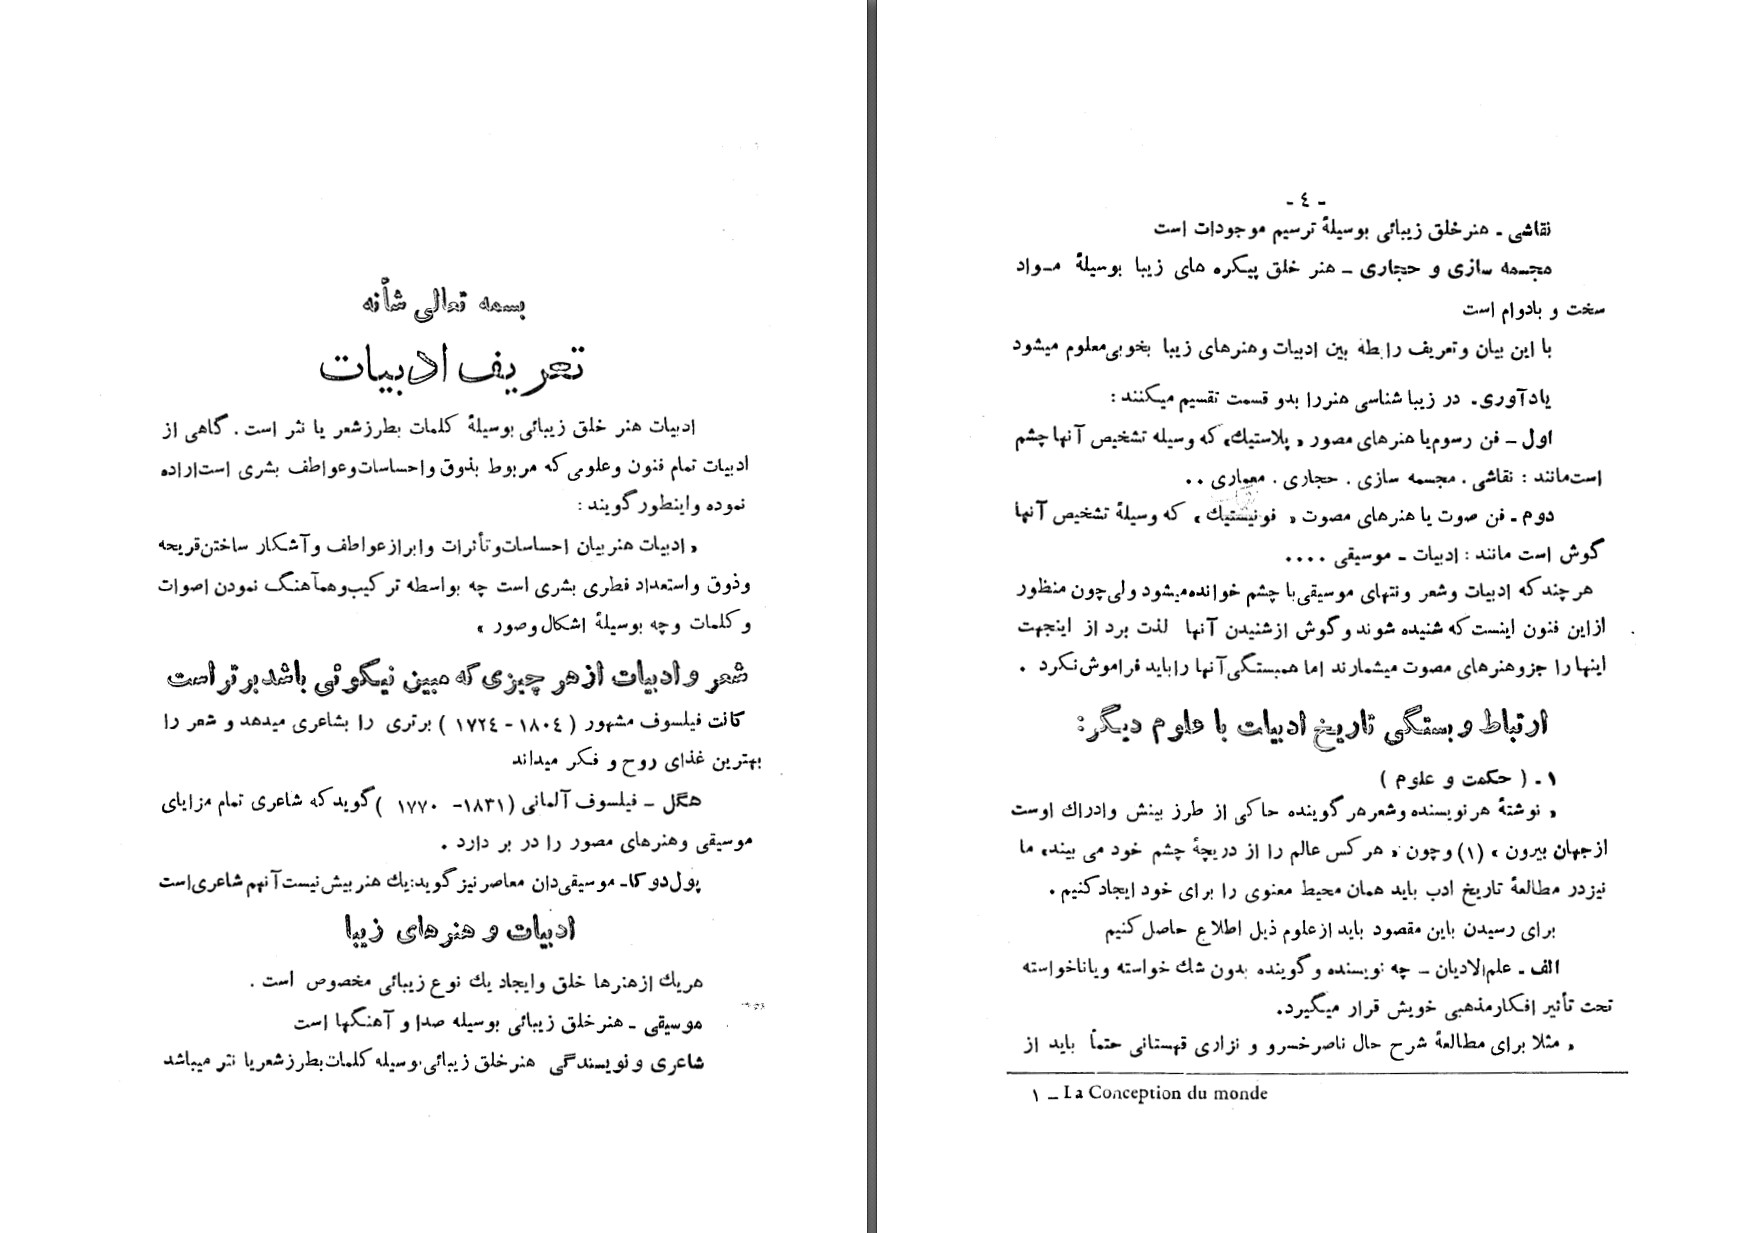 بسمه تعالی شأنه
تعریف ادبیات
ادبیات هنر خلق زیبائی بوسیلهٔ کلمات بطرز شعر یا نثر است . گاهی از
ادبیات تمام فنون و علومی که مربوط بذوق و احساسات و عواطف بشری است اراده
نموده و اینطور گویند :
« ادبیات هنر بیان احساسات و تأثرات و ابراز عواطف و آشکار ساختن قریحه
و ذوق و استعداد فطری بشری است چه بواسطه ترکیب و همآهنگ نمودن اصوات
و کلمات و چه بوسیلهٔ اشکال و صور »
شعر و ادبیات از هر چیزی که مبین نیکوئی باشد برتر است
کانت فیلسوف مشهور ( ۱۸۰٤ - ۱۷۲٤ ) برتری را بشاعری میدهد و شعر را
بهترین غذای روح و فکر میداند
هگل ـ فیلسوف آلمانی (۱۸۳۱- ۱۷۷۰ ) گوید که شاعری تمام مزایای
موسیقی و هنرهای مصور را در بر دارد .
پول دو کا ـ موسیقی‌دان معاصر نیز گوید: یك هنر بیش نیست آنهم شاعری است
ادبیات و هنرهای زیبا
هریك از هنرها خلق و ایجاد یك نوع زیبائی مخصوص است .
موسیقی ـ هنر خلق زیبائی بوسیله صدا و آهنگها است
شاعری و نویسندگی هنر خلق زیبائی بوسیله کلمات بطرز شعر یا نثر میباشد
- ٤ -
نقاشی ـ هنر خلق زیبائی بوسیلهٔ ترسیم موجودات است
مجسمه سازی و حجاری ـ هنر خلق پیکره های زیبا بوسیلهٔ مـواد
سخت و بادوام است
با این بیان و تعریف رابطه بین ادبیات و هنرهای زیبا بخوبی معلوم میشود
یادآوری. در زیبا شناسی هنر را بدو قسمت تقسیم میکنند :
اول ـ فن رسوم یا هنرهای مصور « پلاستیك» که وسیله تشخیص آنها چشم
است مانند : نقاشی . مجسمه سازی . حجاری . معماری . .
دوم ـ فن صوت یا هنرهای مصوت « فونیستیك » که وسیلهٔ تشخیص آنها
گوش است مانند : ادبیات ـ موسیقی . . . .
هر چند که ادبیات و شعر و نتهای موسیقی با چشم خوانده میشود ولی چون منظور
از این فنون اینست که شنیده شوند و گوش از شنیدن آنها لذت برد از اینجهت
اینها را جزو هنرهای مصوت میشمارند اما همبستگی آنها را باید فراموش نکرد .
ارتباط و بستگی تاریخ ادبیات با علوم دیگر:
۱ ـ ( حکمت و علوم )
« نوشتهٔ هر نویسنده و شعر هر گوینده حاکی از طرز بینش و ادراك اوست
از جهان بیرون » (۱) و چون « هر کس عالم را از دریچهٔ چشم خود می بیند» ما
نیز در مطالعهٔ تاریخ ادب باید همان محیط معنوی را برای خود ایجاد کنیم .
برای رسیدن باین مقصود باید از علوم ذیل اطلاع حاصل کنیم
الف ـ علم‌الادیان ـ چه نویسنده و گوینده بدون شك خواسته و یا ناخواسته
تحت تأثیر افکار مذهبی خویش قرار میگیرد.
« مثلا برای مطالعهٔ شرح حال ناصر خسرو و نزاری قهستانی حتماً باید از
۱ ـ La Conception du monde